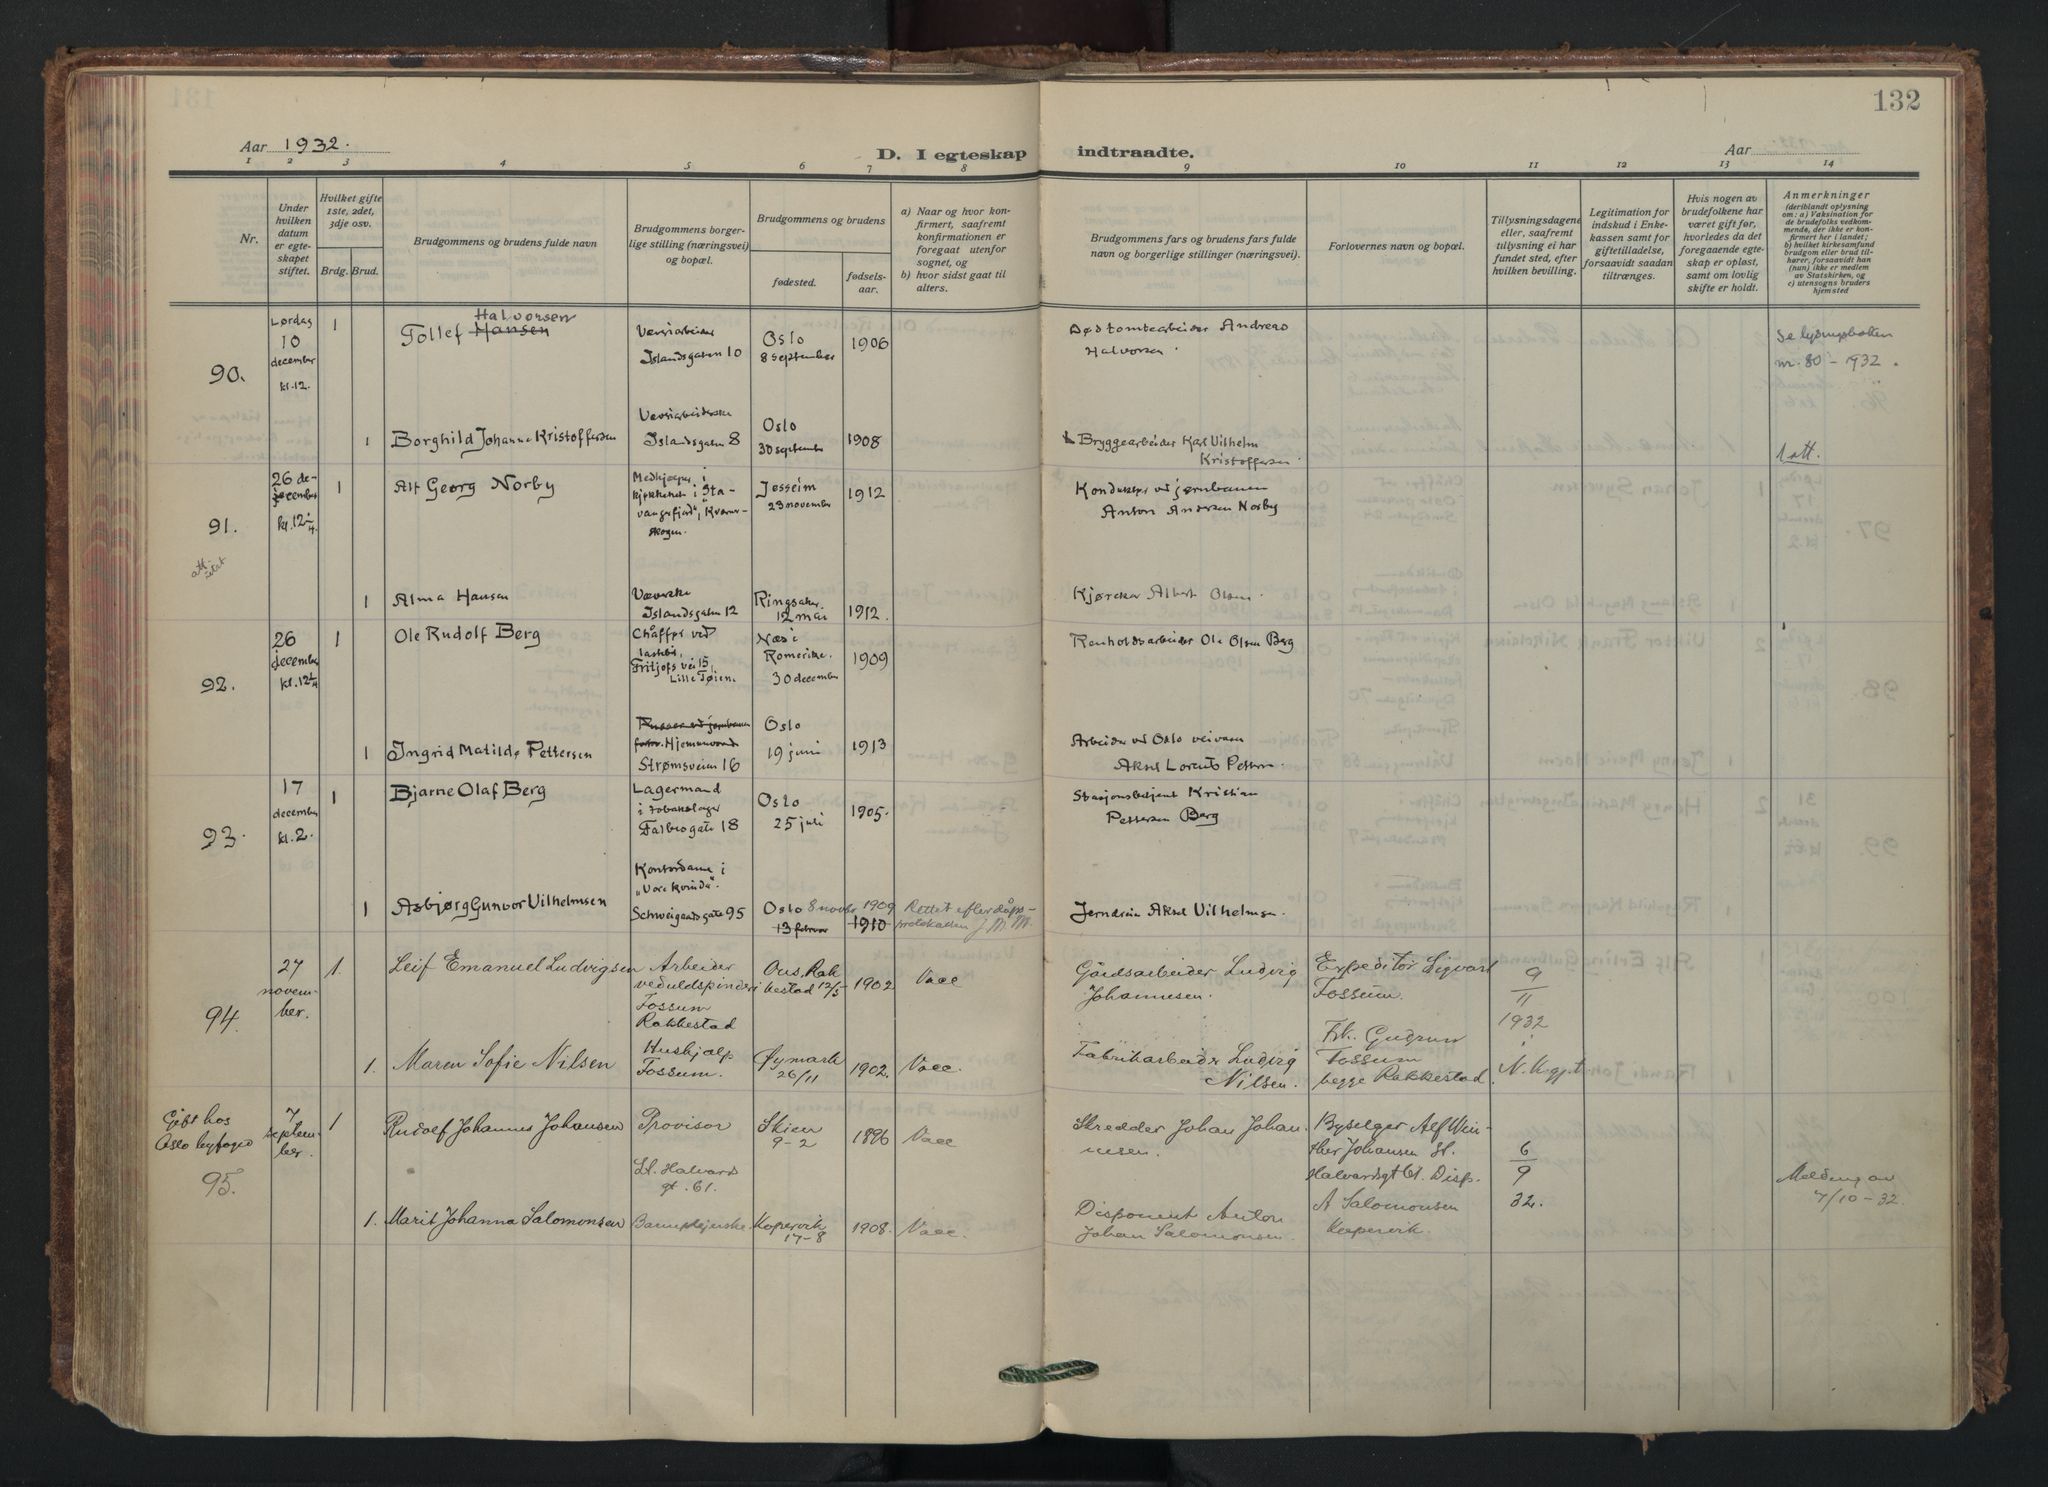 132
Aar 1932.
D. I egteskap indtraadte.
Aar
1 2 3 4 5 6 7 8 9 10 11 12 13 14
Nr.
Under
hvilken
datum
er egte-
skapet
stiftet.
Hvilket gifte
1ste, 2det,
3dje osv.
Brdg. Brud.
Brudgommens og brudens fulde navn
Brudgommens borger-
lige stilling (næringsvei)
og bopæl.
Brudgommens og brudens
fødested.
fødsels-
aar.
a) Naar og hvor kon-
firmert, saafremt
konfirmationen er
foregaat utenfor
sognet, og
b) hvor sidst gaat til
alters.
Brudgommens fars og brudens fars fulde
navn og borgerlige stillinger (næringsvei).
Forlovernes navn og bopæl.
Tillysningsdagene
eller, saafremt
tillysning ei har
fundet sted, efter
hvilken bevilling.
Legitimation for
indskud i Enke-
kassen samt for
giftetilladelse,
forsaavidt saadan
tiltrænges.
Hvis nogen av
brudefolkene har
været gift før,
hvorledes da det
foregaaende egte-
skap er opløst,
samt om lovlig
skifte er holdt.
Anmerkninger
(deriblandt oplysning
om: a) Vaksination for
de brudefolks vedkom-
mende, der ikke er kon-
firmert her i landet;
b) hvilket kirkesamfund
brudgom eller brud til-
hører, forsaavidt han
(hun) ikke er medlem
av Statskirken, og
c) utensogns bruders
hjemsted
90.
Lørdag
10
december
kl. 12.
1
Halvorsen
Tollef Hansen
Væveriarbeider
Islandsgaten 10
Oslo
8 september
1906
Død tomtearbeider Andreas
Halvorsen
Se lysningsboken
nr. 80 - 1932.
1
Borghild Johanne Kristoffersen
Islandsgaten 8
Oslo
30 september
1908
Bryggearbeider Karl Vilhelm
Kristoffersen.
1 att.
91.
26 de-
cember
kl. 12 1/4
1
Alf Georg Norby
Medhjælper i
kjøkkenet i "Sta-
vangerfjord", Kværner-
skogen.
Jesseim
23 november
1912
Konduktør ved jernbanen
Anton Andersen Norby
1
Alma Hansen
Væverske
Islandsgaten 12
Ringsaker.
12 mai
1912.
Kjørekar Albert Olsen.
92.
26
december
kl. 12 1/4
1
Ole Rudolf Berg
Chaffør ved
lastebil,
Fritjofs vei 15
Lille Tøien.
Næs i
Romerike.
30 december
1909
Renholdsarbeider Ole Olsen Berg
1
Ingrid Matilde Pettersen
Hjemmeværende
Strømsveien 16
Oslo
19 juni
1913
Arbeider ved Oslo veivæsen
Aksel Lorents Pettersen
93.
17
december
kl. 2.
1
Bjarne Olaf Berg
Lagermand
i tobakslager
Falbesgate 18
Oslo
25 juli
1905.
Stasjonsbetjent Kristian
Pettersen Berg
1
Asbjørg Gunvor Vilhelmsen
Kontordame i
"Vore Kvinder".
Schweigaardsgate 95
Oslo 8 novbr 1909
13 februar 1910
Rettet efter dåps-
protokollen J. M. M.
Jerndreier Aksel Vilhelmsen.
94.
27
novem-
ber.
1.
Leif Emanuel Ludvigsen
Arbeider
ved uldspinderi
Fossum
Rakkestad
Ous, Rak
kestad 12/5
1902
Vacc
Gårdsarbeider Ludvig
Johannesen.
Expeditør Sigvart
Fossum.
9
11
1932
1.
Maren Sofie Nilsen
Hushjælp
Fossum.
Øymark
26/11
1902.
Vacc.
Fabrikarbeider Ludvig
Nilsen.
Frk. Gudrun
Fossum
begge Rakkestad.
Gift hos
Oslo byfoged
95.
7
septem-
ber.
1
Rudolf Johannes Johansen
Provisor
St. Halvards
gt. 61.
Skien
9-2
1896
Vacc
Skredder Johan Johan
nesen.
Byselger Alf Win-
ther Johansen St.
Halvardsgt 61. Disp.
6
9
32.
Melding av
7/10 - 32.
1.
Marit Johanna Salomonsen
Barnepleierske
Kopervik
17-8
1908.
Vacc.
Disponent Anton
Johan Salomonsen.
A Salomonsen
Kopervik.